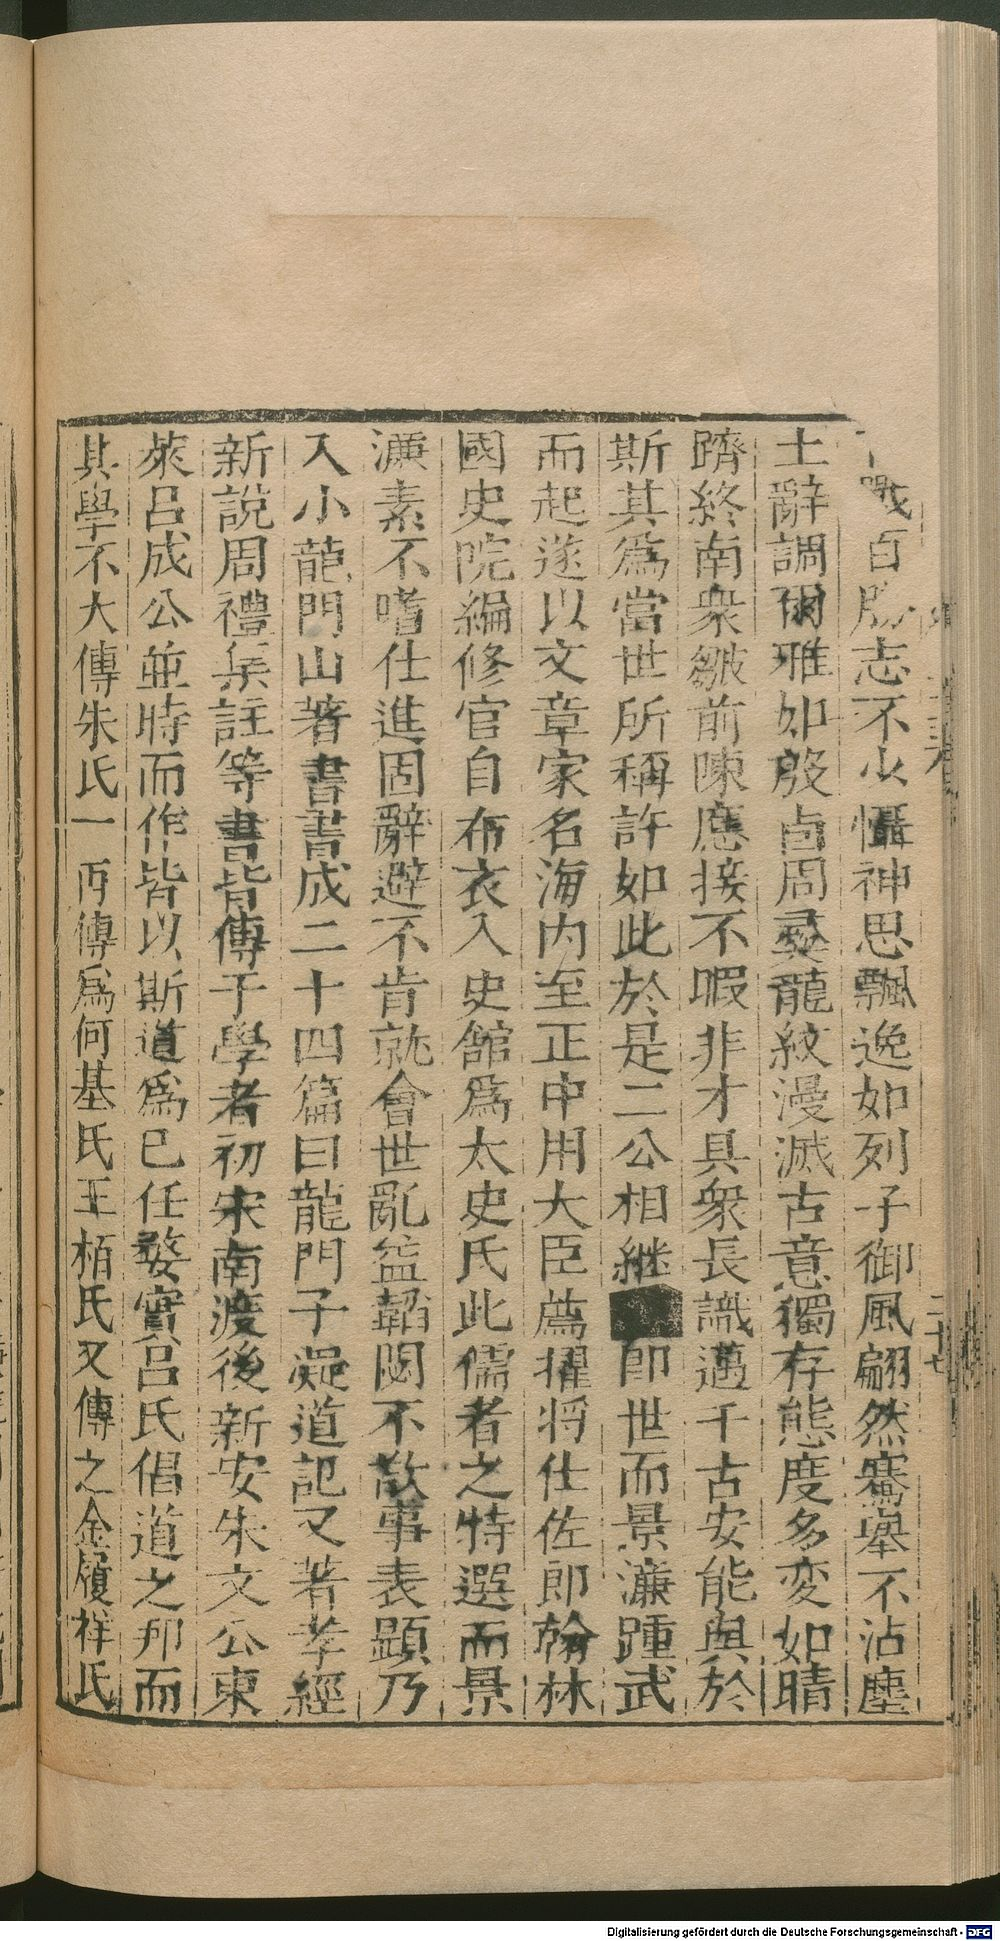 戰百勝志不少懾神思飄逸如列子御風翩然騫舉不沾塵
土辭調爾雅如殷卣周彝龍紋漫滅古意獨存態度多变如晴
躋終南衆皺前陳應接不暇非才具衆長識邁千古安能與於
斯其爲當世所稱許如此於是二公相継即世而景濂踵武
而起遂以文章家名海内至正中用大臣薦擢将仕佐郎翰林
國史院編修官自布衣入史館爲太史氏此儒者之特選而景
濂素不嗜仕進固辭避不肯就會世亂益韜閟不敢事表顕乃
入小龍門山著書書成二十四篇曰龍門子凝道記又著孝經
新說周禮集註等書皆傳于學者初宋南渡後新安朱文公東
萊呂成公並時而作皆以斯道爲己任婺實呂氏倡道之邦而
其學不大傳朱氏一再傳爲何基氏王栢氏又傳之金履祥氏
二十七
Digitalisierung gefördert durch die Deutsche Forschungsgemeinschaft - DFG